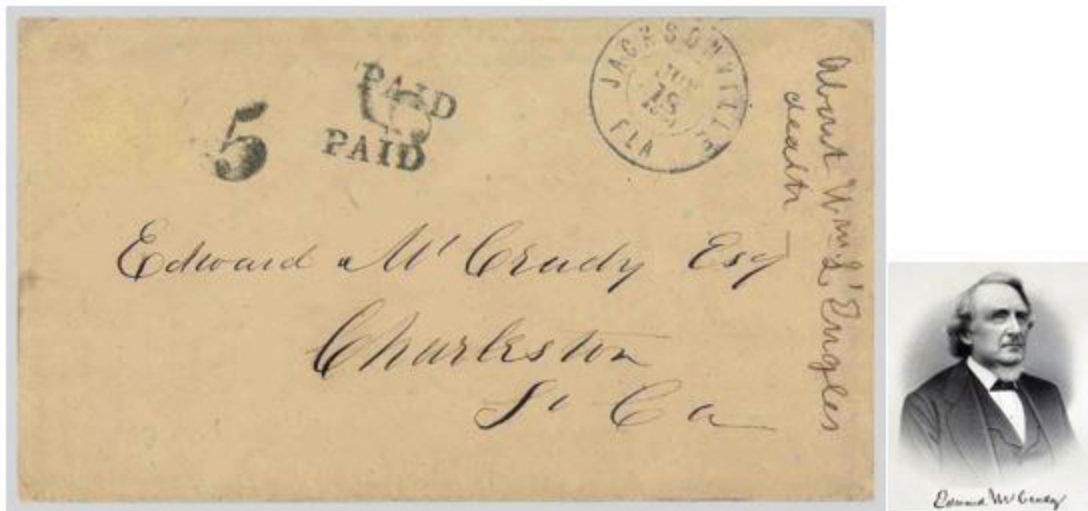 5
PAID
PAID
JACKSONVILLE
18
FLA
About Wm. L'Engles
death
Edward McCrady Esq
Charleston
So Ca
Edward McCrady